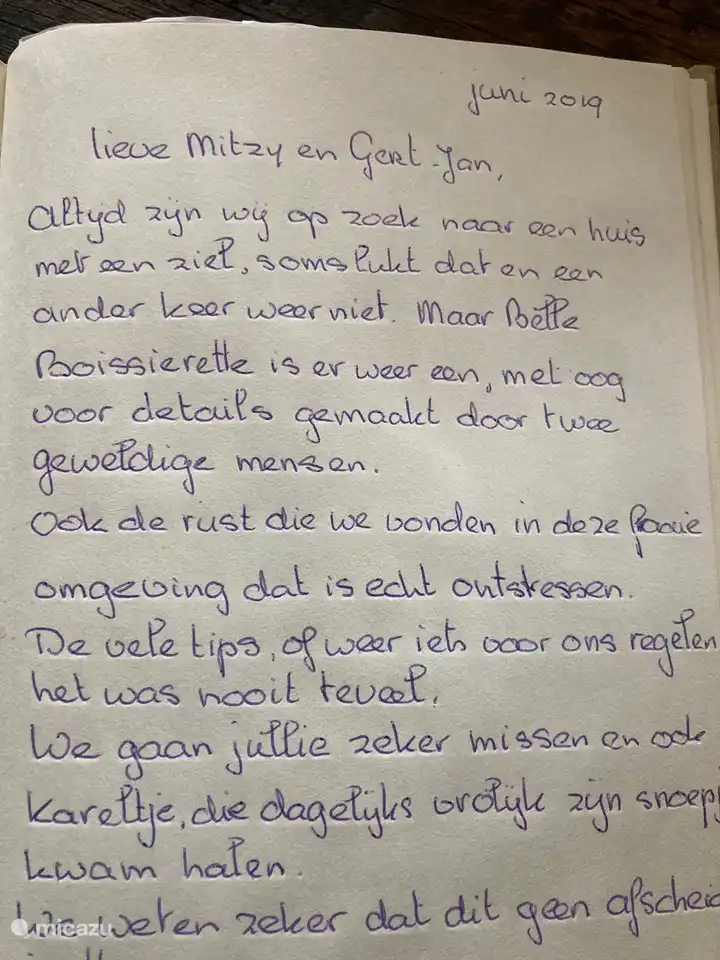 juni 2019
lieve Mitzy en Gert-Jan,
Altijd zijn wij op zoek naar een huis
met een ziel, soms lukt dat en een
ander keer weer niet. Maar Belle
Boissierette is er weer een, met oog
voor details gemaakt door twee
geweldige mensen.
Ook de rust die we vonden in deze fraaie
omgeving dat is echt ontstressen.
De vele tips, of weer iets voor ons regelen
het was nooit teveel.
We gaan jullie zeker missen en ook
Kareltje, die dagelijks vrolijk zijn snoepj
kwam halen.
We weten zeker dat dit geen afscheid
micazu